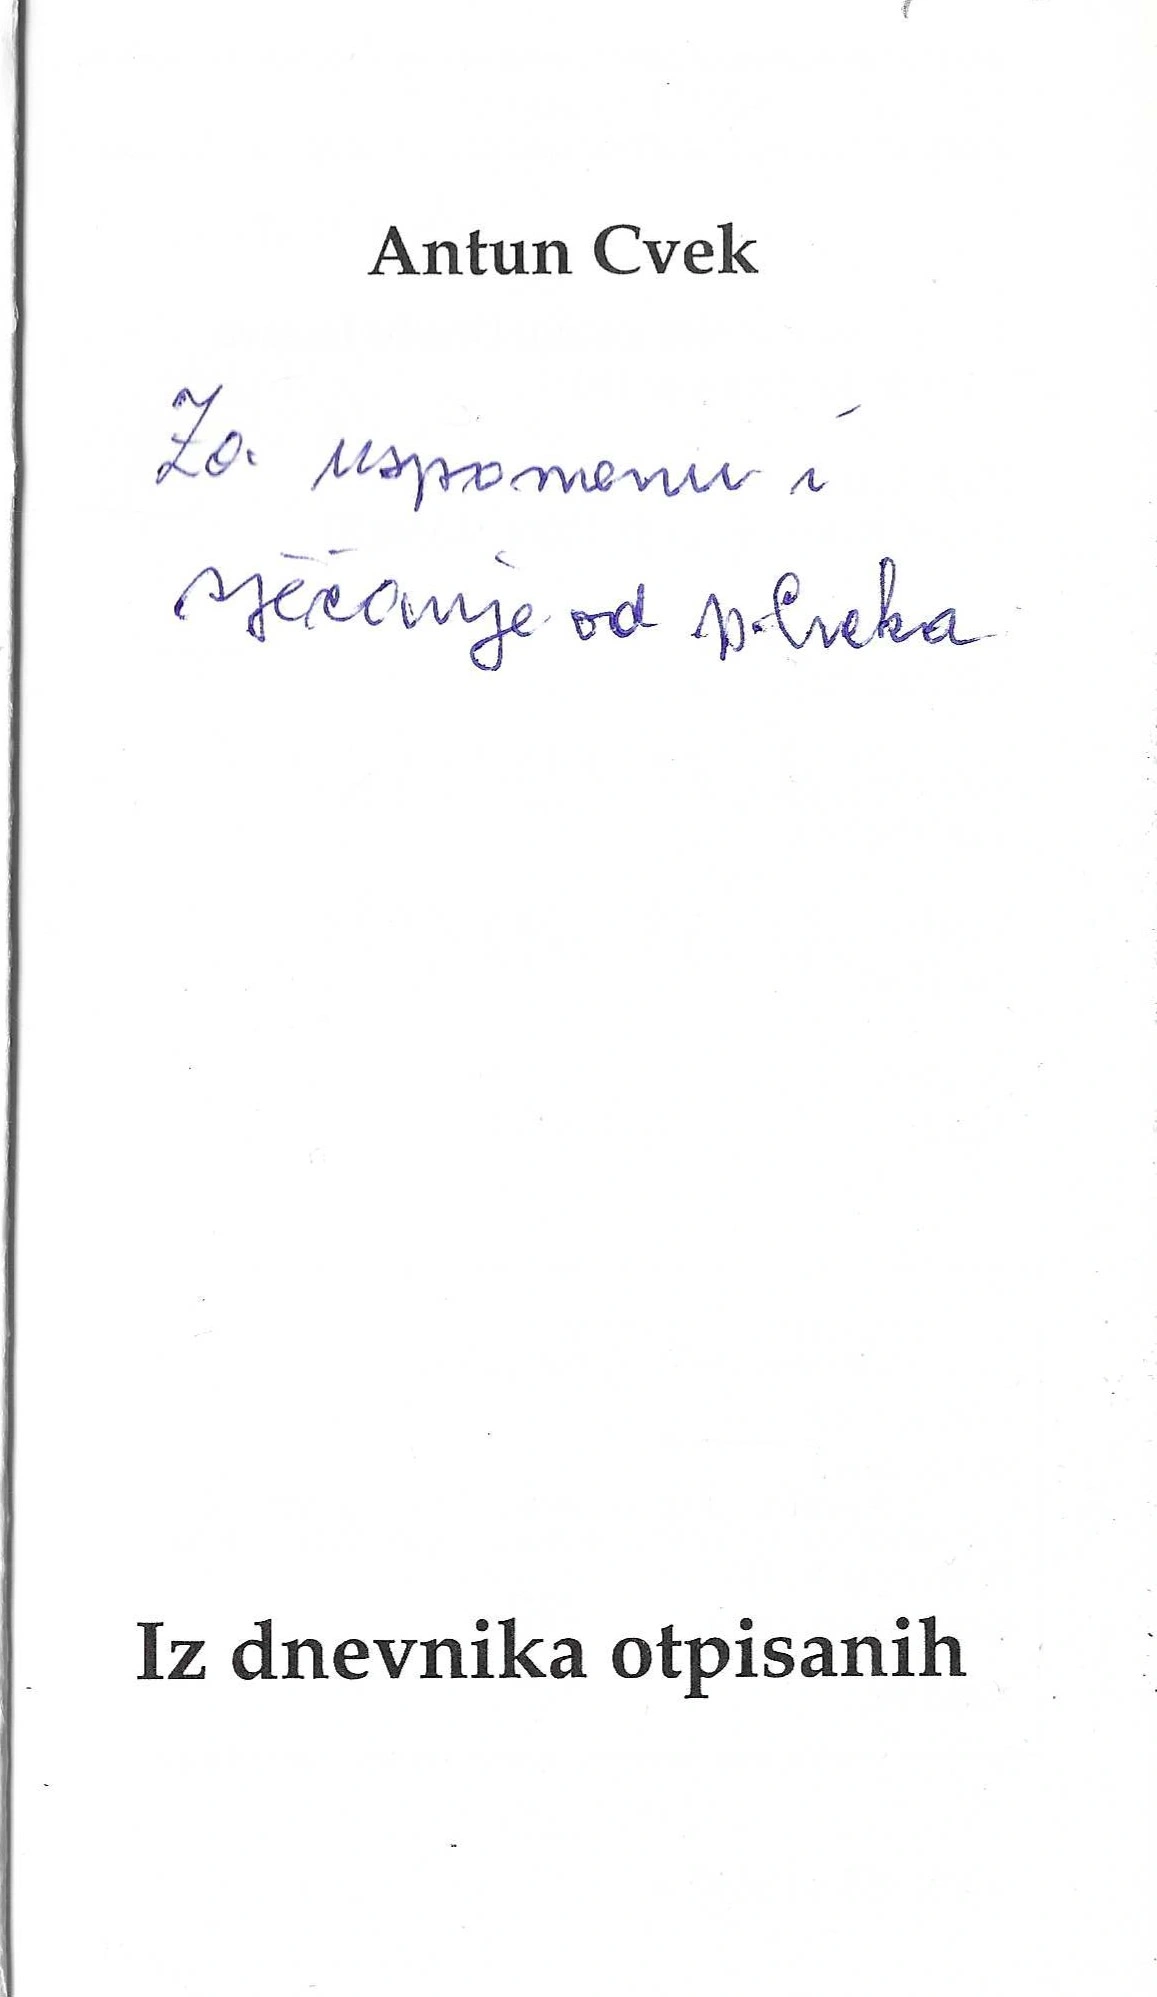 Antun Cvek
Za uspomenu i
sjećanje od p. Cveka
Iz dnevnika otpisanih